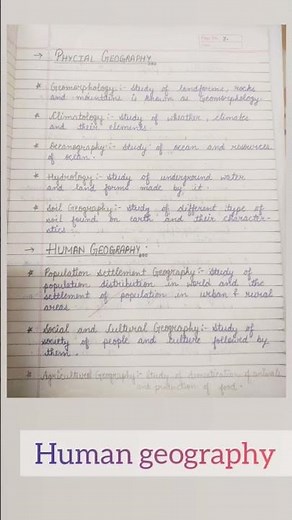 → PHYCIAL GEOGRAPHY
* Geomorphology:- Study of landforms, rocks
and mountains is known as Geomorphology.
* Climatology:- Study of weather, climates
and their elements
* Oceanography:- Study of ocean and resources
of ocean.
* Hydrology:- Study of underground water
and land forms made by it.
* Soil Geography:- Study of different type of
soil found on earth and their character-
stics.
→ HUMAN GEOGRAPHY:
* Population Settlement Geography:- Study of
population distribution in world and the
settlement of population in urban & rural
areas
* Social and Cultural Geography:- Study of
society of people and culture followed by
them.
* Agricultural Geography:- Study of domestication of animals
and production of food.
Human geography